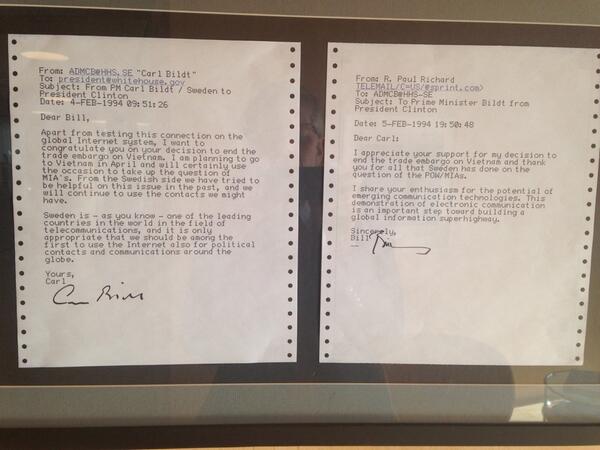 From: ADMCB@HHS.SE "Carl Bildt"
To: president@whitehouse.gov
Subject: From PM Carl Bildt / Sweden to
President Clinton
Date: 4-FEB-1994 09:51:26
Dear Bill,
Apart from testing this connection on the
global Internet system, I want to
congratulate you on your decision to end the
trade embargo on Vietnam. I am planning to go
to Vietnam in April and will certainly use
the occasion to take up the question of
MIA's. From the Swedish side we have tried to
be helpful on this issue in the past, and we
will continue to use the contacts we might
have.
Sweden is - as you know - one of the leading
countries in the world in the field of
telecommunications, and it is only
appropriate that we should be among the
first to use the Internet also for political
contacts and communications around the
globe.
Yours,
Carl
Carl Bildt
From: R. Paul Richard
TELEMAIL/C=US/@sprint.com>
To: ADMCB@HHS-SE
Subject: To Prime Minister Bildt from
President Clinton
Date: 5-FEB-1994 19:50:48
Dear Carl:
I appreciate your support for my decision to
end the trade embargo on Vietnam and thank
you for all that Sweden has done on the
question of the POW/MIAs.
I share your enthusiasm for the potential of
emerging communication technologies. This
demonstration of electronic communication
is an important step toward building a
global information superhighway.
Sincerely,
Bill
--